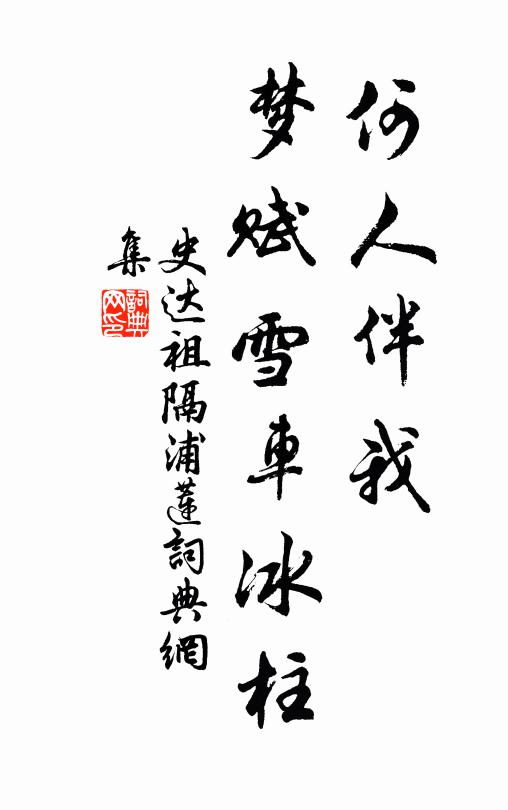 何人伴我
梦赋雪車冰柱
史达祖隔浦蓮詞典網
集
詞典网印